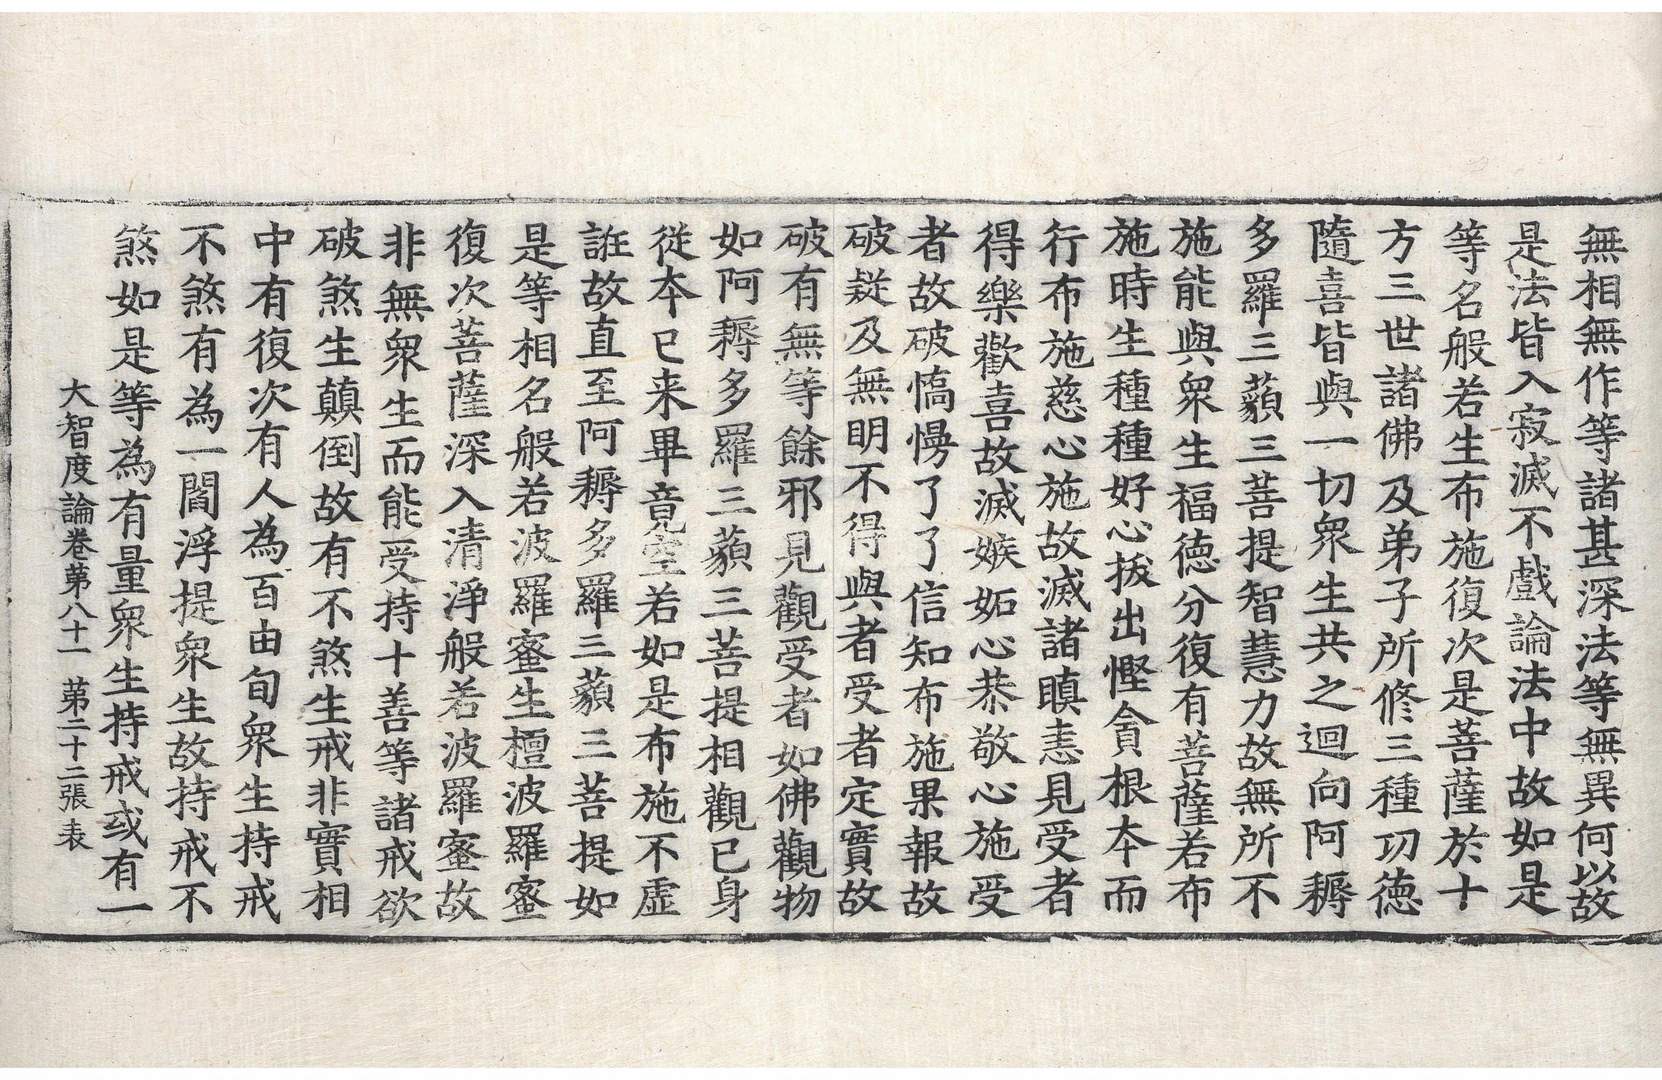 無相無作等諸甚深法等無異何以故
是法皆入寂滅不戲論法中故如是
等名般若生布施復次是菩薩於十
方三世諸佛及弟子所修三種功德
隨喜皆與一切衆生共之迴向阿耨
多羅三藐三菩提智慧力故無所不
施能與衆生福德分復有菩薩若布
施時生種種好心拔出慳貪根本而
行布施慈心施故滅諸瞋恚見受者
得樂歡喜故滅嫉妬心恭敬心施受
者故破憍慢了了信知布施果報故
破疑及無明不得與者受者定實故
破有無等餘邪見觀受者如佛觀物
如阿耨多羅三藐三菩提相觀已身
從本已来畢竟空若如是布施不虛
誑故直至阿耨多羅三藐三菩提如
是等相名般若波羅蜜生檀波羅蜜
復次菩薩深入清淨般若波羅蜜故
非無衆生而能受持十善等諸戒欲
破煞生顛倒故有不煞生戒非實相
中有復次有人為百由旬衆生持戒
不煞有為一閻浮提衆生故持戒不
煞如是等為有量衆生持戒或有一
大智度論卷苐八十一 苐二十二張 表